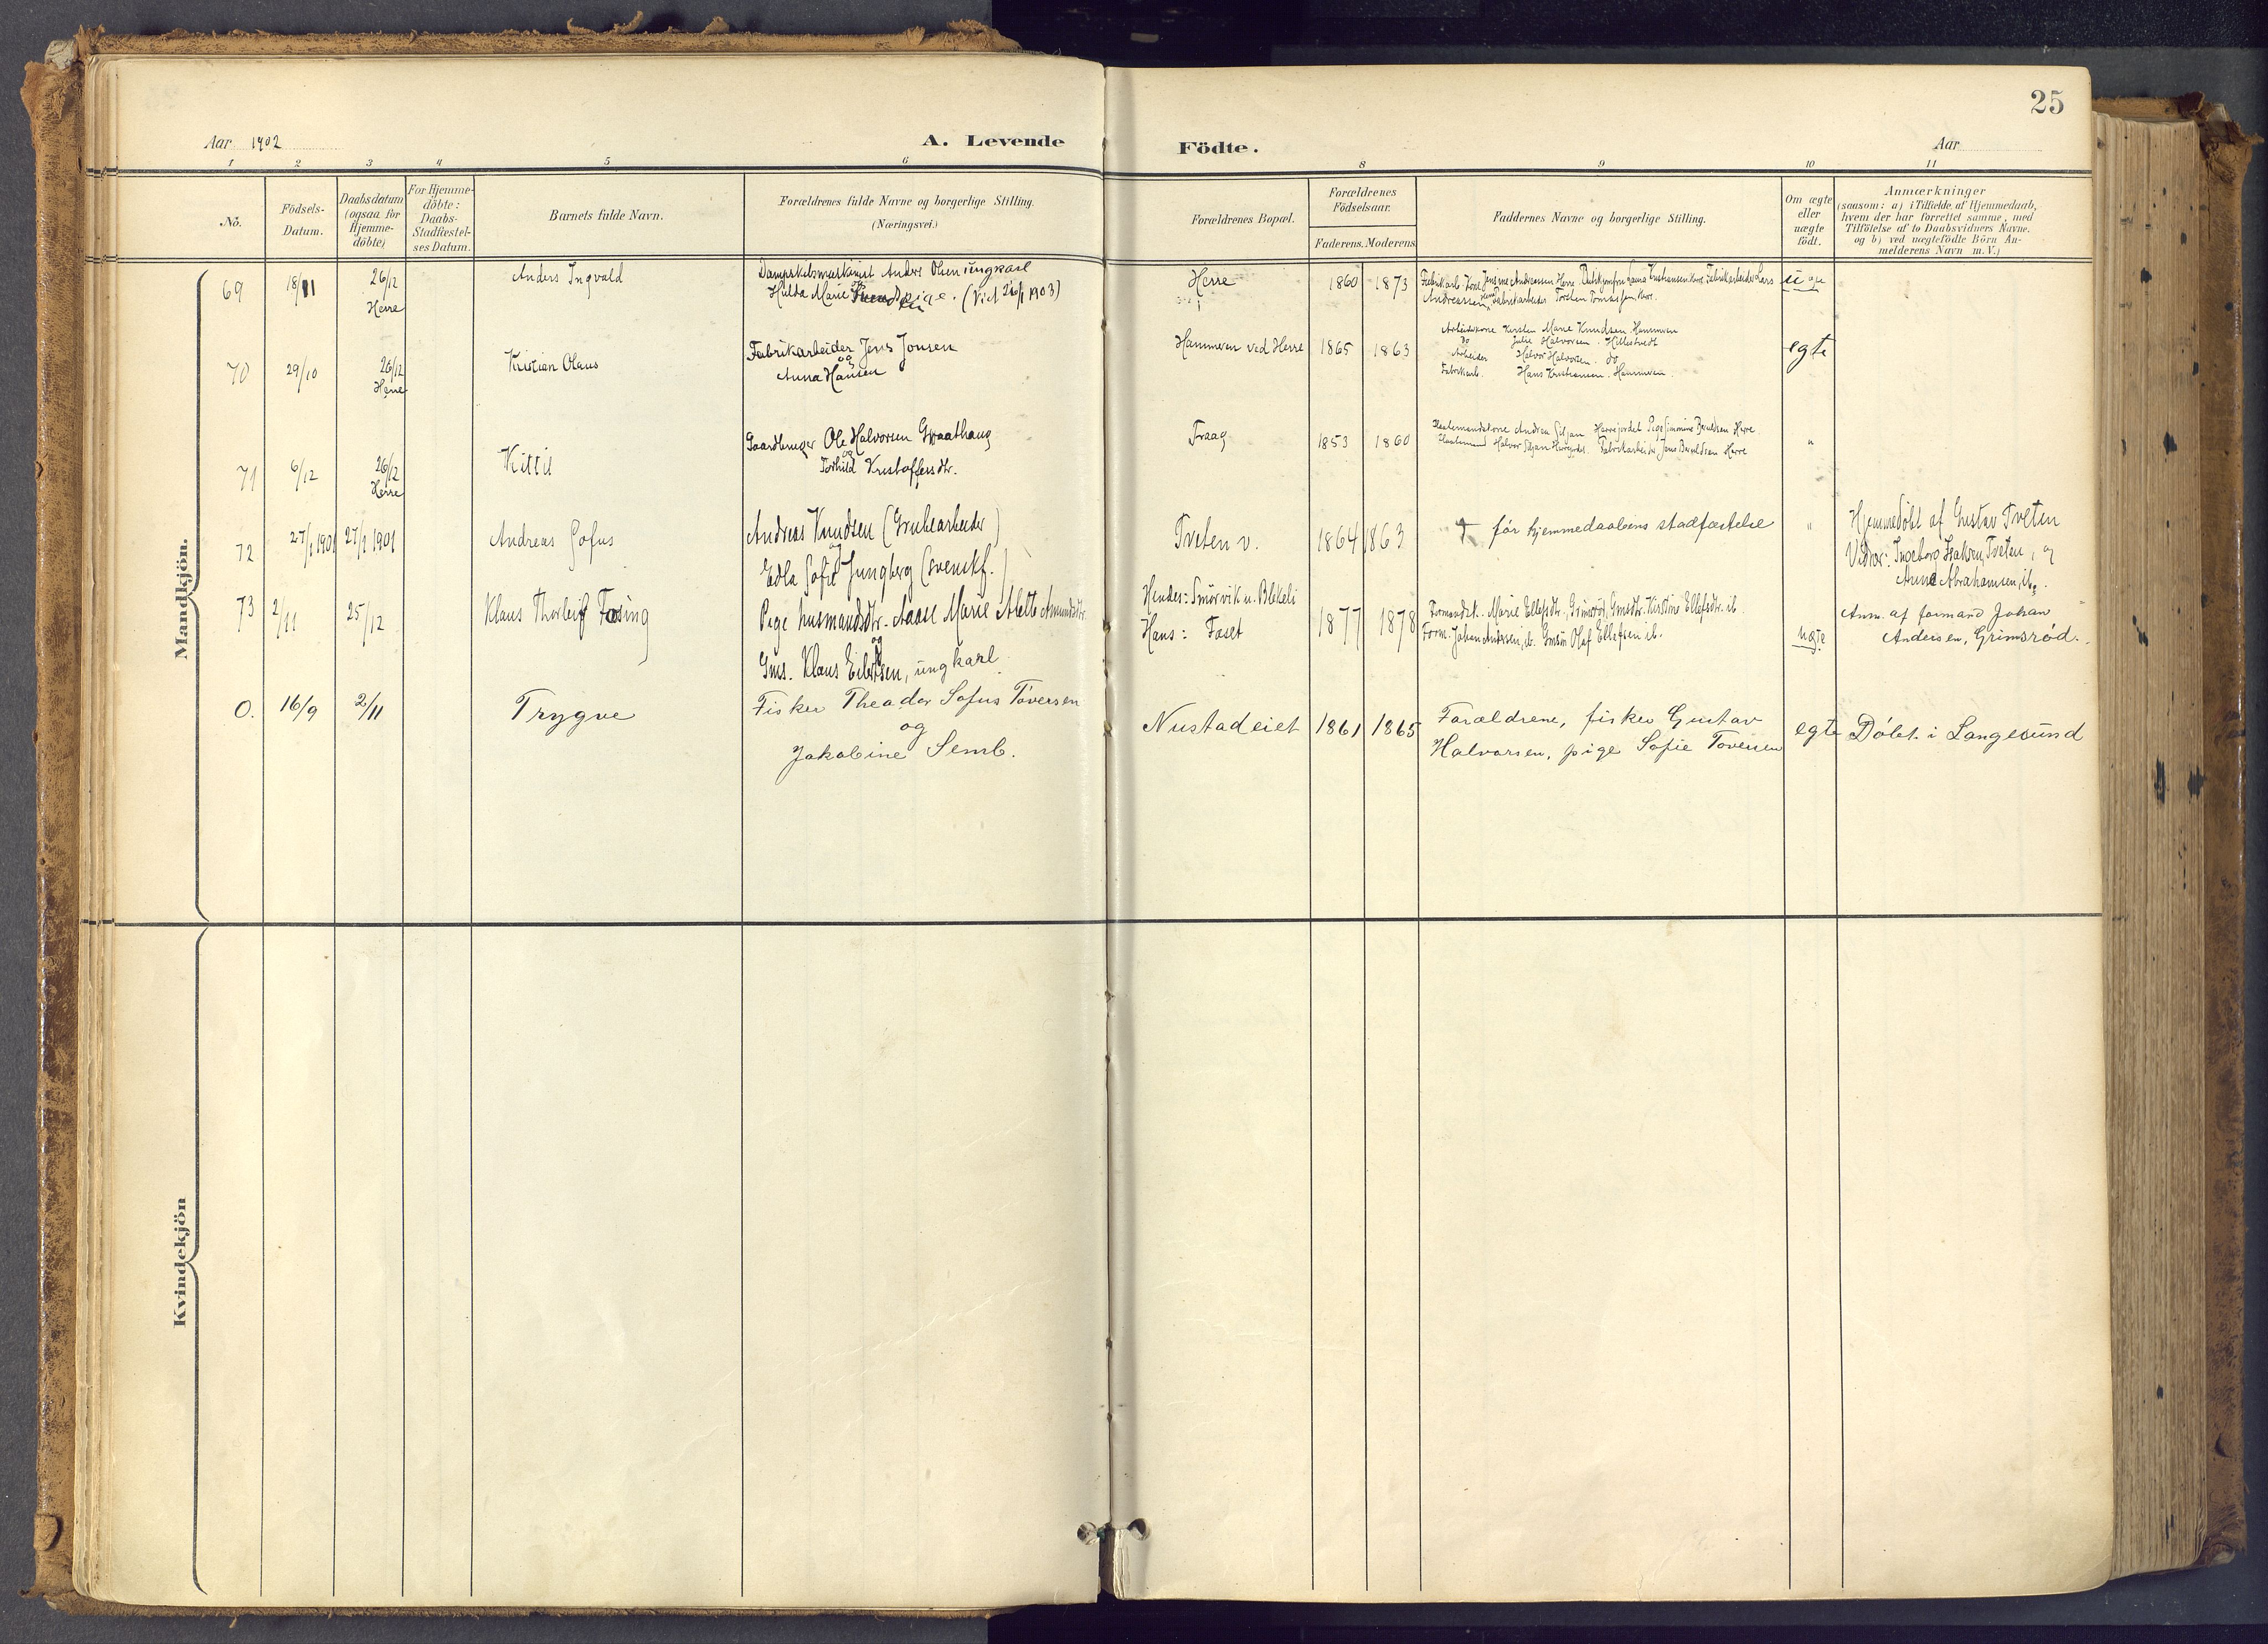 25
Aar 1902
A. Levende Födte.
Aar
1 2 3 4 5 6 8 9 10 11
No.
Födsels-Datum.
Daabsdatum (ogsaa for Hjemmedöbte)
For Hjemmedöbte: Daabs-Stadfæstelses Datum.
Barnets fulde Navn.
Forældrenes fulde Navne og borgerlige Stilling. (Næringsvei.)
Forældrenes Bopæl.
Forældrenes Födselsaar.
Faderens. Moderens.
Faddernes Navne og borgerlige Stilling.
Om ægte eller uægte födt.
Anmærkninger
(saasom: a) i Tilfælde af Hjemmedaab,
hvem der har forrettet samme, med
Tilföielse af to Daabsvidners Navne.
og b) ved uægtefödte Börn Anmelderens Navn m.V.)
Mandkjön.
69 18/11 26/12 Herre
Anders Ingvald
Dampskibsmaskinist Anders Olsen ungkarl
Hulda Marie pige. (Viet 26/1 1903)
Herre 1860 1873
Andreassen Fabrikarbeider Torsten
70 29/10 26/12 Herre
Kristian Olaus
Fabrikarbeider Jens Jonsen
og
Anna Hansen
Hammeren ved Herre 1865 1863
Arbeiderkone Kirsten Marie Knudsen Hammeren
Do Julie Halvorsen. Hillestvedt
Arbeider Halvor Halvorsen. do
Fabrikarb. Hans Kristiansen. Hammeren.
egte
71 6/12 26/12 Herre
Kittil
Gaardbruger Ole Halvorsen Graathaug
og
Torhild Kristoffersdtr.
Traag 1853 1860
Andrea Siljan Herregjordet Pige Simmine Berntdsen Herre
Halvor Siljan Fabrikarbeider Jens Berntdsen Herre
"
72 27/1 1901 27/1 1901
Andreas Sofus
Andreas Knudsen (Grubearbeider)
og
Edla Sofie Jungberg (svensk f.)
Tveten v. 1864 1863
† før hjemmedaabens stadfæstelse
"
Hjemmedöbt af Gustav Tveten
Vidner: Ingeborg Isaksen Tveten, og
Anne Abrahamsen, ib.
73 2/11 25/12
Klaus Thorleif Fosing
Pige husmandsdtr. Aaase Marie Alette Amundsdtr.
og
Gms. Klaus Eilertsen, ungkarl
Hendes: Smørvik u. Blekeli
Hans: Foset
1877 1878
Formandsk. Marie Ellefsdtr, Grimsrød, Gmsdtr. Kirstine Ellefsdtr. ib.
Form. Johan Andersen, ib. Gmsøn Olaf Ellefsen ib.
uægte
Anm. af formand Johan
Andersen, Grimsrød.
0. 16/9 2/11
Trygve
Fisker Theodor Sofus Töversen
og
Jakobine Semb.
Nustadeiet 1861 1865
Forældrene, fisker Gustav
Halvorsen, pige Sofie Tøversen
egte
Döbt i Langesund
Kvindekjön